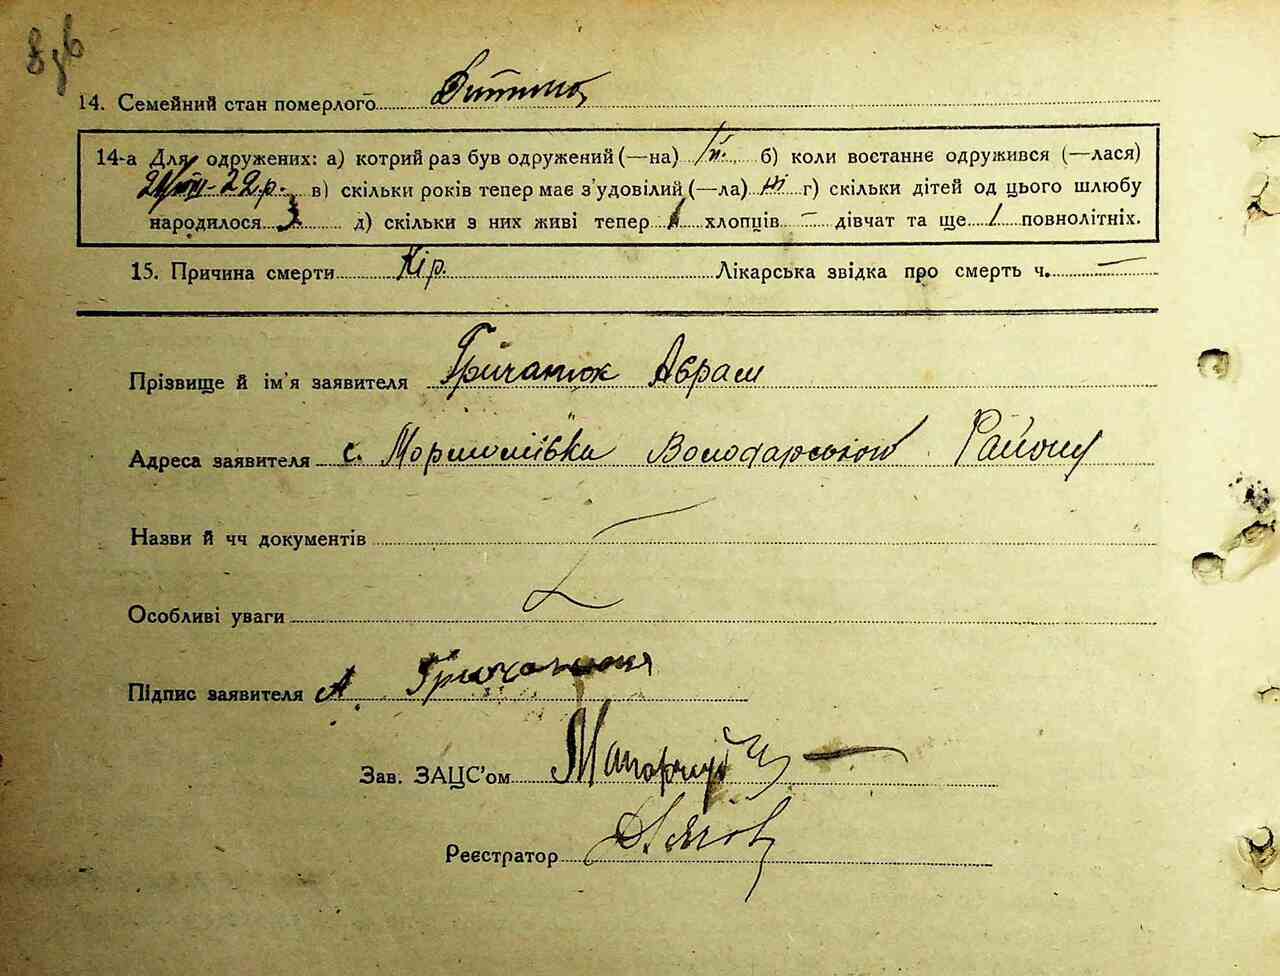 8зв
14. Семейний стан померлого Дитина
14-а Для одружених: а) котрий раз був одружений (—на) 1й. б) коли востанне одружився (—лася)
22р. в) скільки років тепер має з'удовілий (—ла) г) скільки дітей од цього шлюбу
народилося 3 д) скільки з них живі тепер 1 хлопців – дівчат та ще 1 повнолітніх.
15. Причина смерти Кір. Лікарська звідка про смерть ч. —
Прізвище й ім'я заявителя Гричанюк Абрам
Адреса заявителя с. Мормоліївка Володарського Району
Назви й чч документів
Особливі уваги
Підпис заявителя А Гричанюк
Зав. ЗАЦС'ом
Реєстратор